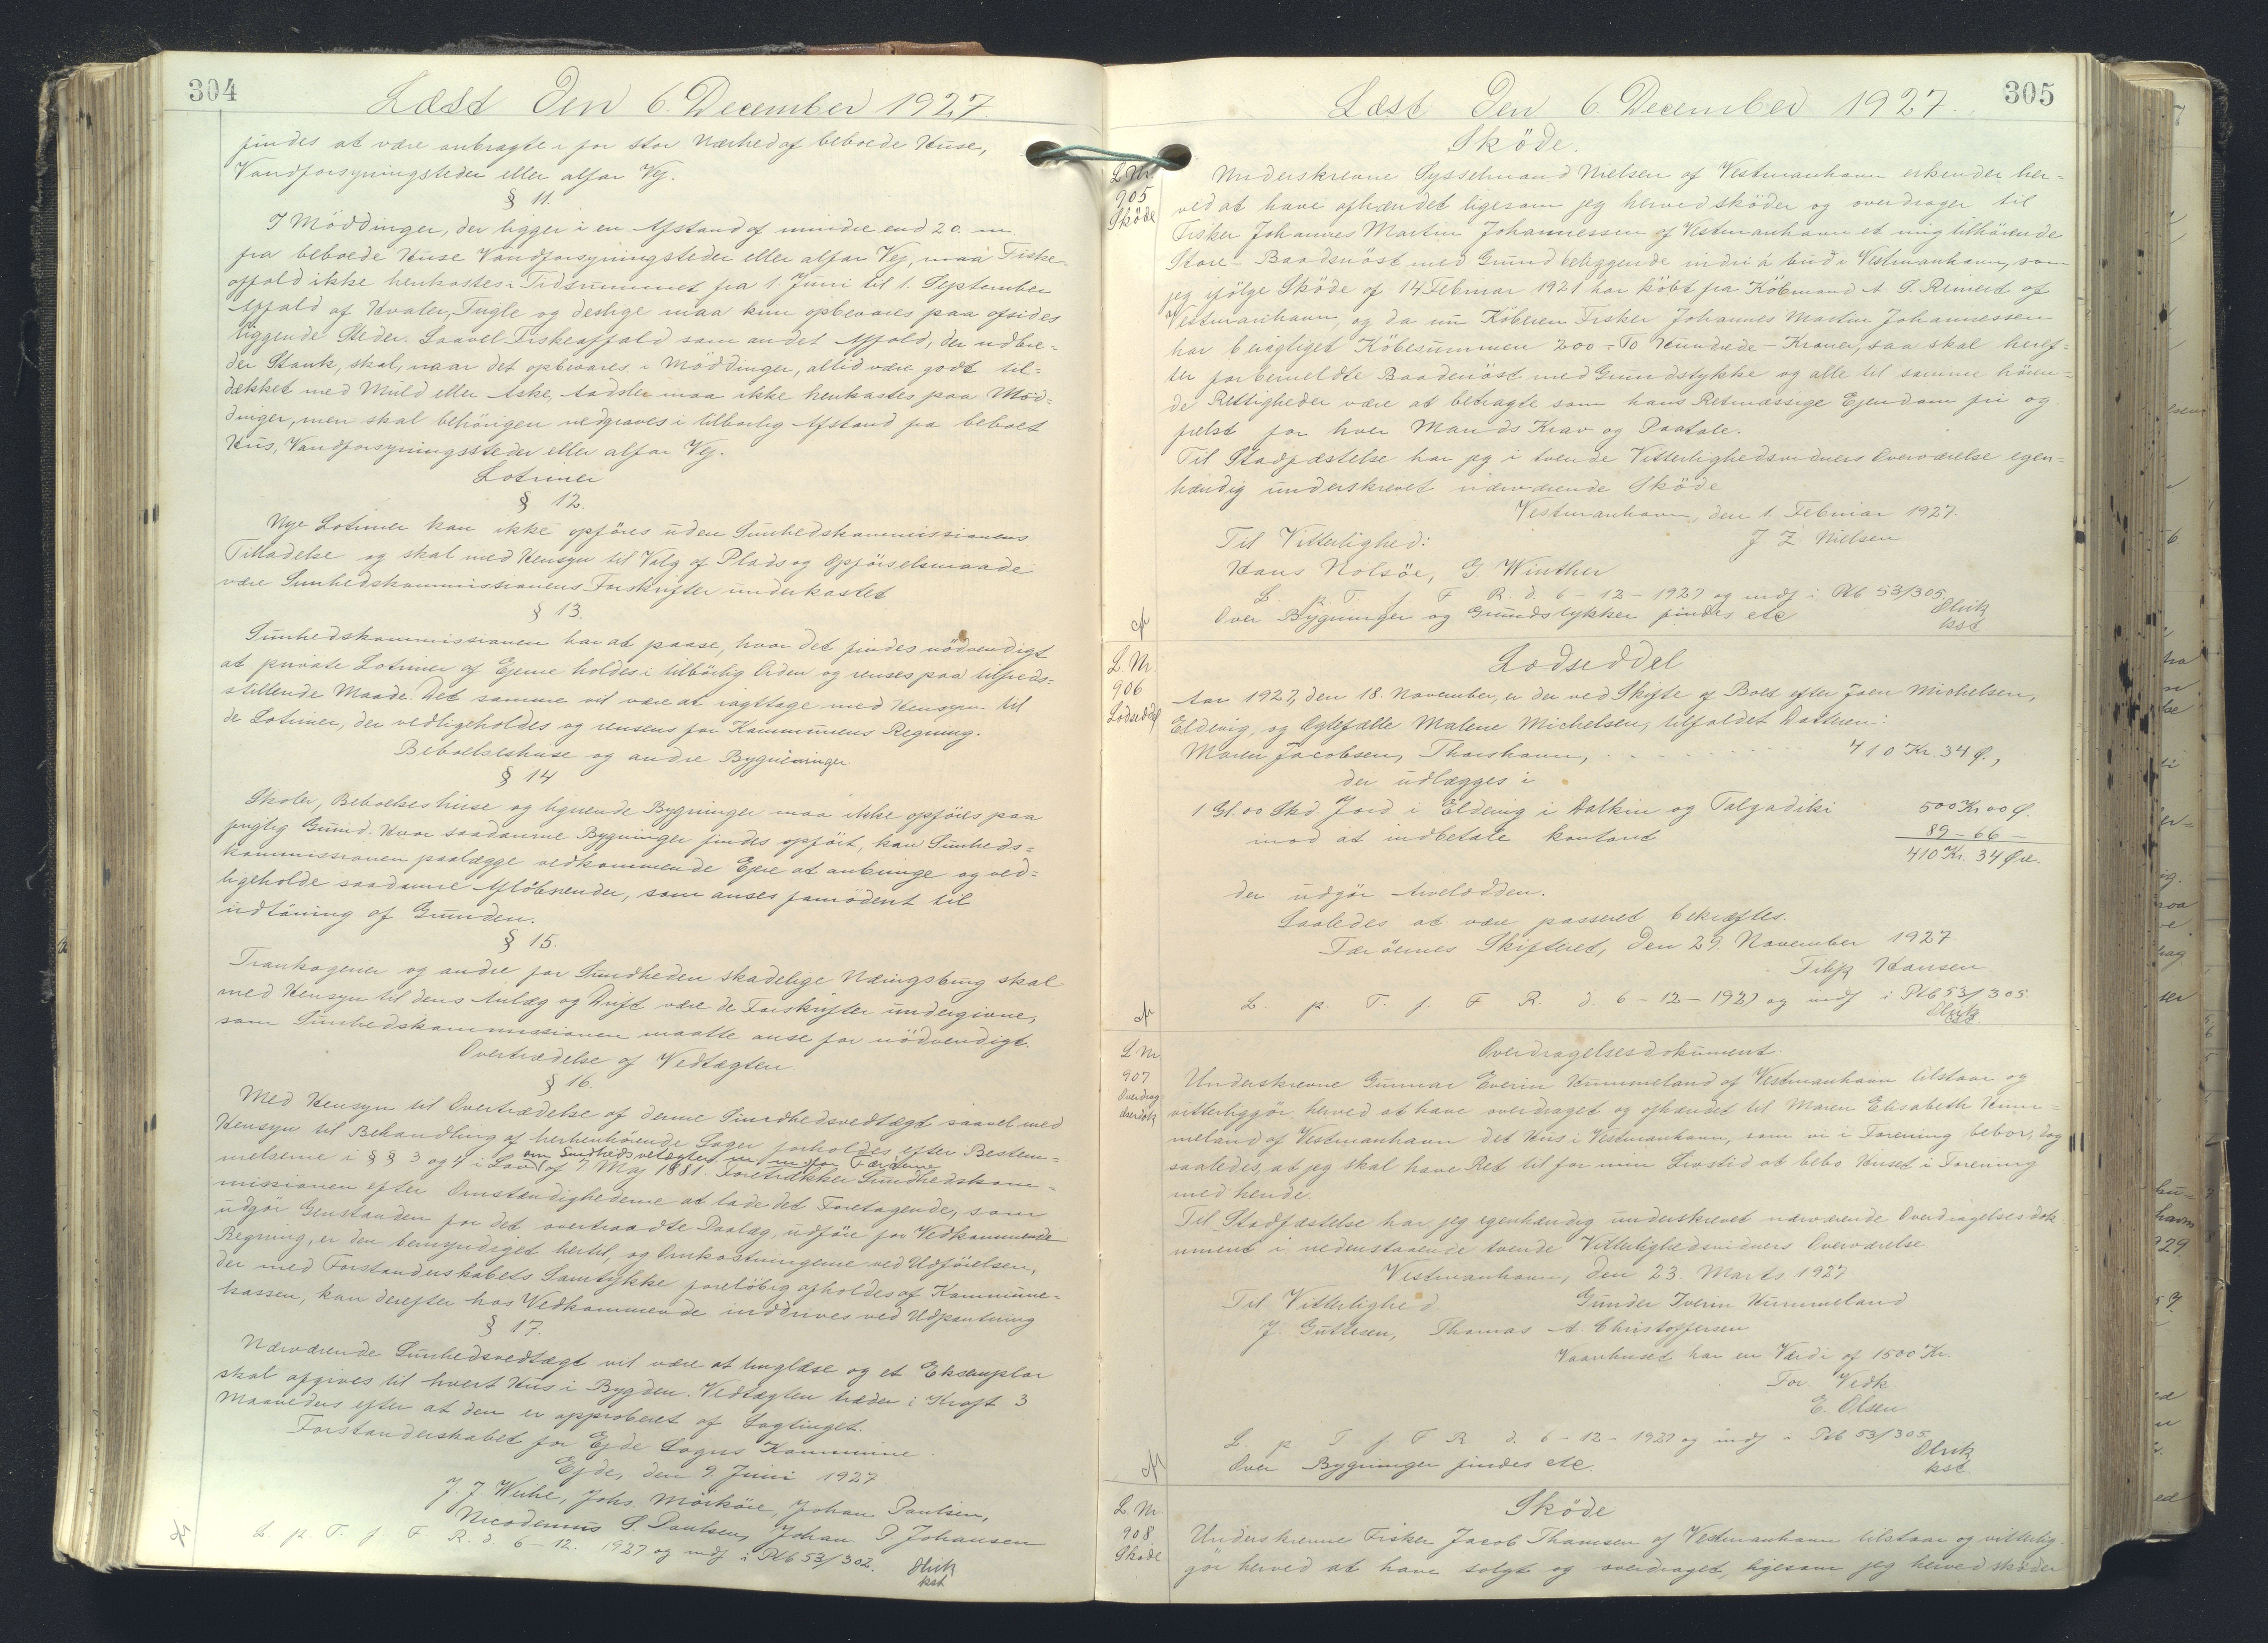 304
Læst Den 6. December 1927.
findes at være anbragte i for stor Nærhed af beboede Huse,
Vandforsyningsteder eller alfar Vej.
§ 11.
I Möddinger, der ligger i en Afstand af mindre end 20 m
fra beboede Huse Vandforsyningsteder eller alfar Vej, maa Fiske-
affald ikke henkastes i Tidsrummet fra 1. Juni til 1. September
Affald af Hvaler, Fugle og deslige maa kun opbevares paa afsides
liggende Steder. Saavel Fiskeaffald som andet Affald, der udbre-
der Stank, skal, naar det opbevares i Möddinger, altid være godt til-
dækket med Muld eller Aske, Aadsler maa ikke henkastes paa Möd-
dinger, men skal behörigen nedgraves i tilbørlig Afstand fra beboet
Hus, Vandforsyningssteder eller alfar Vej.
Latriner
§ 12.
Nye Latriner kan ikke opföres uden Sunhedskommissionens
Tilladelse og skal med Hensyn til Valg af Plads og Opförselsmaade
være Sunhedskommissionens Forskrifter underkastet
§ 13.
Sunhedskommissionen har at paase, hvor det findes nödvendigt
at private Latriner af Ejerne holdes i tilbörlig Orden og renses paa tilfreds-
stillende Maade. Det samme vil være at iagttage med Hensyn til
de Latriner, der vedligeholdes og rensens for Kommunens Regning.
Beboelseshuse og andre Bygninger
§ 14
Skoler, Beboelseshuse og lignende Bygninger maa ikke opföres paa
fugtig Grund. Hvor saadanne Bygninger findes opfört, kan Sunheds-
kommissionen paalægge vedkommende Ejere at anbringe og ved-
ligeholde saadanne Aflöbsrender, som anses fornödent til
udtöring af Grunden.
§ 15.
Trankogerier og andre for Sundheden skadelige Næringsbrug skal
med Hensyn til dens Anlæg og Drift være de Forskrifter undergivne,
som Sunhedskommissionen maatte anse for nödvendigt.
Overtrædelse af Vedtægten.
§ 16.
Med Hensyn til Overtrædelse af denne Sundhedsvedtægt saavel med
Hensyn til Behandling af herhenhörende Sager forholdes efter Bestem-
om Sundhedsvetægter m.m. for Færöerne
melserne i §§ 3 og 4 i Lov af 7 Maj 1881. Foretrækker Sundhedskom-
missionen efter Omstændighederne at lade det Foretagende, som
udgör Genstanden for det overtraadte Paalæg, udföre for Vedkommende
Regning, er den bemyndiget hertil, og Omkostningerne ved Udförelsen,
der med Forstanderskabets Samtykke forelöbig afholdes af Kommune-
kassen, kan derefter hos Vedkommende inddrives ved Udpantning
§ 17.
Nærværende Sunhedsvedtægt vil være at tinglæse og et Eksemplar
skal afgives til hvert Hus i Bygden. Vedtægten træder i Kraft 3
Maaneders efter at den er approberet af Lagtinget.
Forstanderskabet for Ejde Sogns Kommune.
Ejde, den 9. Juni 1927
J. J. Weihe, Johs. Mörköre, Johan Poulsen,
Nicodemus S. Poulsen, Johan P. Johansen
L. p. T. f. F. R. d. 6-12. 1927 og indf i Ptb 53/302.
Olrik
kst
305
Læst Den 6. December 1927.
Sköde.
L Nr.
905
Sköde
Underskrevne Sysselmand Nielsen af Vestmanhavn erkender her-
ved at have afhændet ligesom jeg herved sköder og overdrager til
Fisker Johannes Martin Johannessen af Vestmanhavn et mig tilhörende
Store-Baadsnöst med Grund beliggende indri á bud i Vestmanhavn, som
jeg ifölge Sköde af 14 Februar 1921 har köbt fra Köbmand A P. Reinert af
Vestmanhavn, og da nu Köberen Fisker Johannes Martin Johannessen
har berigtiget Köbesummen 200 - To Hundrede - Kroner, saa skal heref-
ter forbemeldte Baadenöst med Grundstykke og alle til samme hören-
de Rettigheder være at betragte som hans Retmæssige Ejendom fri og
frelst for hver Mands Krav og Paatale.
Til Stadfæstelse har jeg i tvende Vitterlighedsvidners Overværelse egen-
hændig underskrevet nærværende Sköde
Vestmanhavn, den 1. Februar 1927.
Til Vitterlighed: J Z Nielsen
Hans Nolsöe, G. Winther
L. p. T. f. F R. d. 6-12-1927 og indf i Ptb 53/305.
Over Bygninger og Grundstykker findes etc
Olrik
kst
L. Nr.
906
Lodseddel
Lodseddel
Aar 1927, den 18. November, er der ved Skifte af Boet efter Joen Michelsen,
Eldevig, og Ægtefælle Malene Michelsen, tilfaldet Datteren:
Maren Jacobsen, Thorshavn, 410 Kr. 34 Ø.,
der udlægges i
1 Gl. 00 Skd Jord i Eldevig i Dalkin og Talgadiki 500 Kr 00 Ø.
mod at indbetale kontant 89 - 66 -
410 Kr. 34 Øre.
der udgör Arvelodden.
Saaledes at være passeret bekræftes.
Færöernes Skifteret, den 29. November 1927
Filip Hansen
L. p. T. f. F R. d. 6-12-1927 og indf i Ptb 53/305.
Olrik
kst
L Nr
907
Overdrag
elsesdok
Overdragelsesdokument.
Underskrevne Gunnar Everin Hummeland af Vestmanhavn tilstaar og
vitterliggör herved at have overdraget og afhændet til Maren Elisabeth Hum-
meland af Vestmanhavn det Hus i Vestmanhavn, som vi i Forening bebor, dog
saaledes, at jeg skal have Ret til for min Livstid at bebo Huset i Forening
med hende.
Til Stadfæstelse har jeg egenhændig underskrevet nærværende Overdragelsesdok
ument i nedenstaaende tvende Vitterlighedsvidners Overværelse.
Vestmanhavn, den 23. Marts 1927
Til Vitterlighed. Gunder Iverin Hummeland
J. Guttesen, Thomas A. Christoffersen
Vaanhuset har en Værdi af 1500 Kr.
For Vedk.
E. Olsen
L. p. T. f. F R. d. 6-12-1927 og indf i Ptb 53/305.
Over Bygninger findes etc.
Olrik
kst
L. Nr.
908
Sköde
Sköde
Underskrevne Fisker Jacob Thomsen af Vestmanhavn tilstaar og vitterlig-
gör herved at have solgt og overdraget, ligesom jeg herved sköder